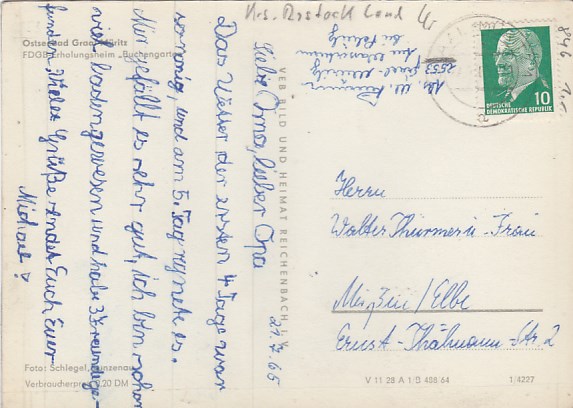 Ostseebad Graal-Müritz
FDGB-Erholungsheim „Buchengarten"
Krs. Rostock Land
2553
Liebe Oma, lieber Opa
21.7.65
Das Wetter der ersten 4 Tage war
sonnig, und am 5. Tag regnete es.
Mir gefällt es sehr gut, ich bin schon
viel baden gewesen und habe 3 Freunde ge-
funden. Viele Grüße sendet Euch Euer
Michael
VEB BILD UND HEIMAT REICHENBACH I. V.
DEUTSCHE
DEMOKRATISCHE REPUBLIK
10
Herrn
Walter Thürmer u. Frau
Meißen/Elbe
Ernst-Thälmann-Str. 2
Foto: Schlegel,
Verbraucherpreis 0,20 DM
V 11 28 A 1/B 488 64
1/4227